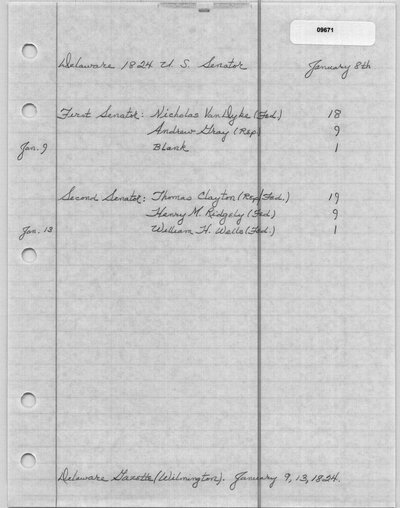 09671
Delaware 1824 U.S. Senator January 8th
First Senator: Nicholas VanDyke (Fed.) 18
Andrew Gray (Rep) 9
Jan. 9 Blank 1
Second Senator: Thomas Clayton (Rep/Fed.) 19
Henry M. Ridgely (Fed) 9
Jan. 13 William H. Wells (Fed.) 1
Delaware Gazette (Wilmington). January 9, 13, 1824.